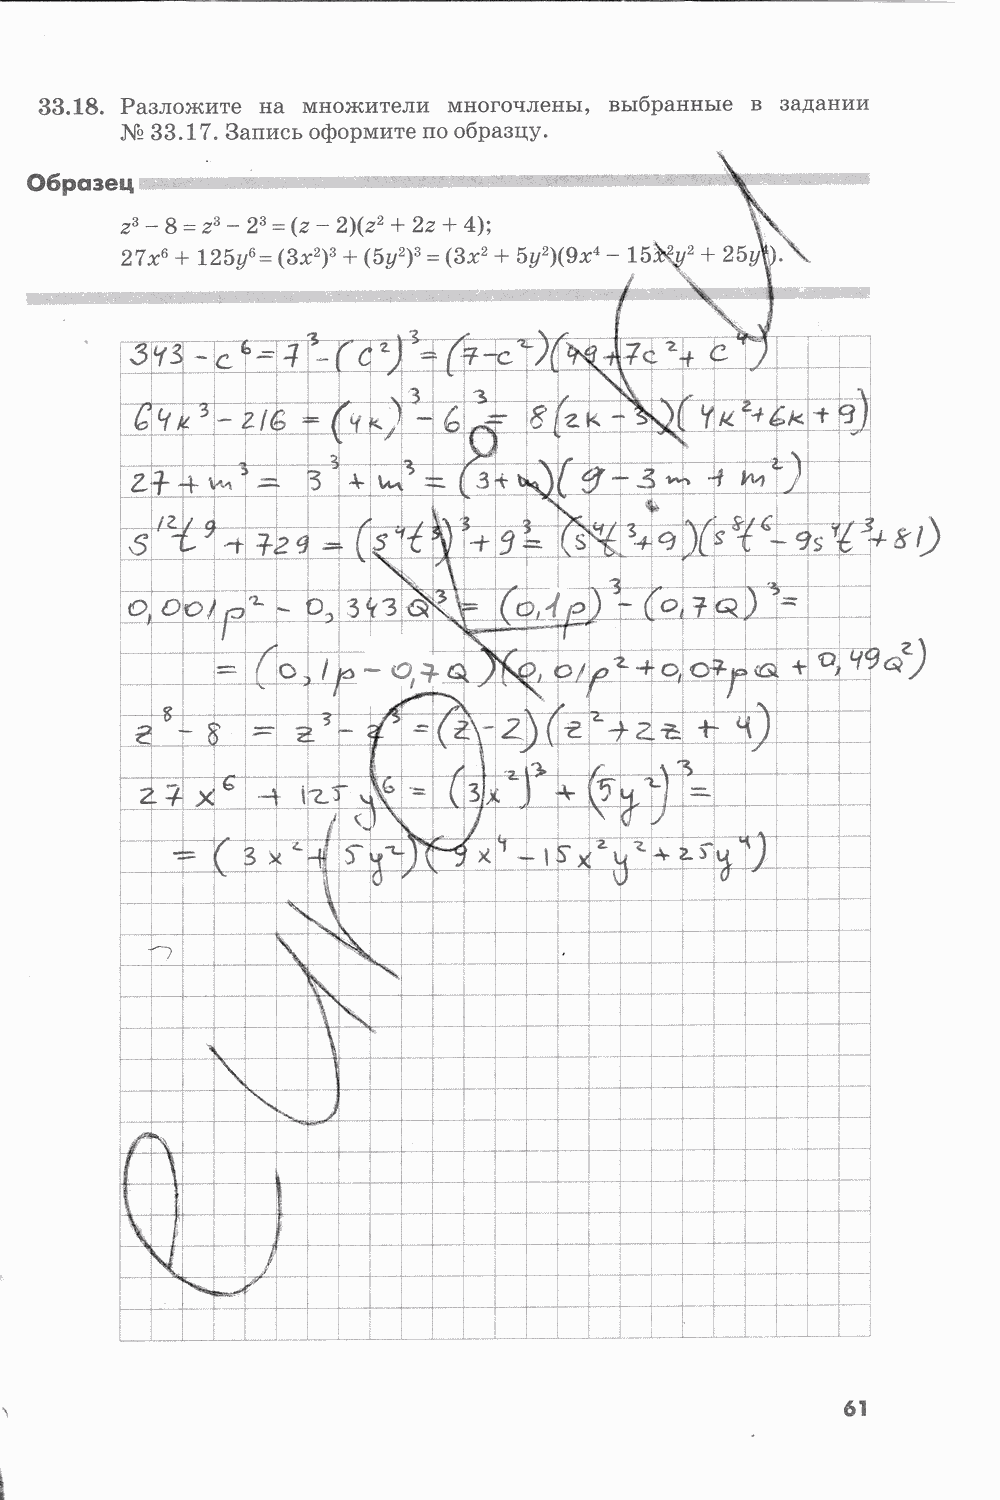 33.18. Разложите на множители многочлены, выбранные в задании
№ 33.17. Запись оформите по образцу.
Образец
z³ − 8 = z³ − 2³ = (z − 2)(z² + 2z + 4);
27x⁶ + 125y⁶ = (3x²)³ + (5y²)³ = (3x² + 5y²)(9x⁴ − 15x²y² + 25y⁴).
343 - c⁶ = 7³ - (c²)³ = (7-c²)(49+7c²+ c⁴)
64к³ - 216 = (4к)³ - 6³ = 8(2к - 3)(4к²+6к+9)
27 + m³ = 3³ + m³ = (3+m)(9 - 3m + m²)
s¹²t⁹ + 729 = (s⁴t³)³ + 9³ = (s⁴t³+9)(s⁸t⁶ - 9s⁴t³+81)
0,001p² - 0,343Q³ = (0,1p)³ - (0,7Q)³ =
= (0,1p - 0,7Q)(0,01p² + 0,07pQ + 0,49Q²)
z⁸ - 8 = z³ - z³ = (z - 2)(z² + 2z + 4)
27x⁶ + 125y⁶ = (3x²)³ + (5y²)³ =
= (3x² + 5y²)(9x⁴ - 15x²y² + 25y⁴)
61